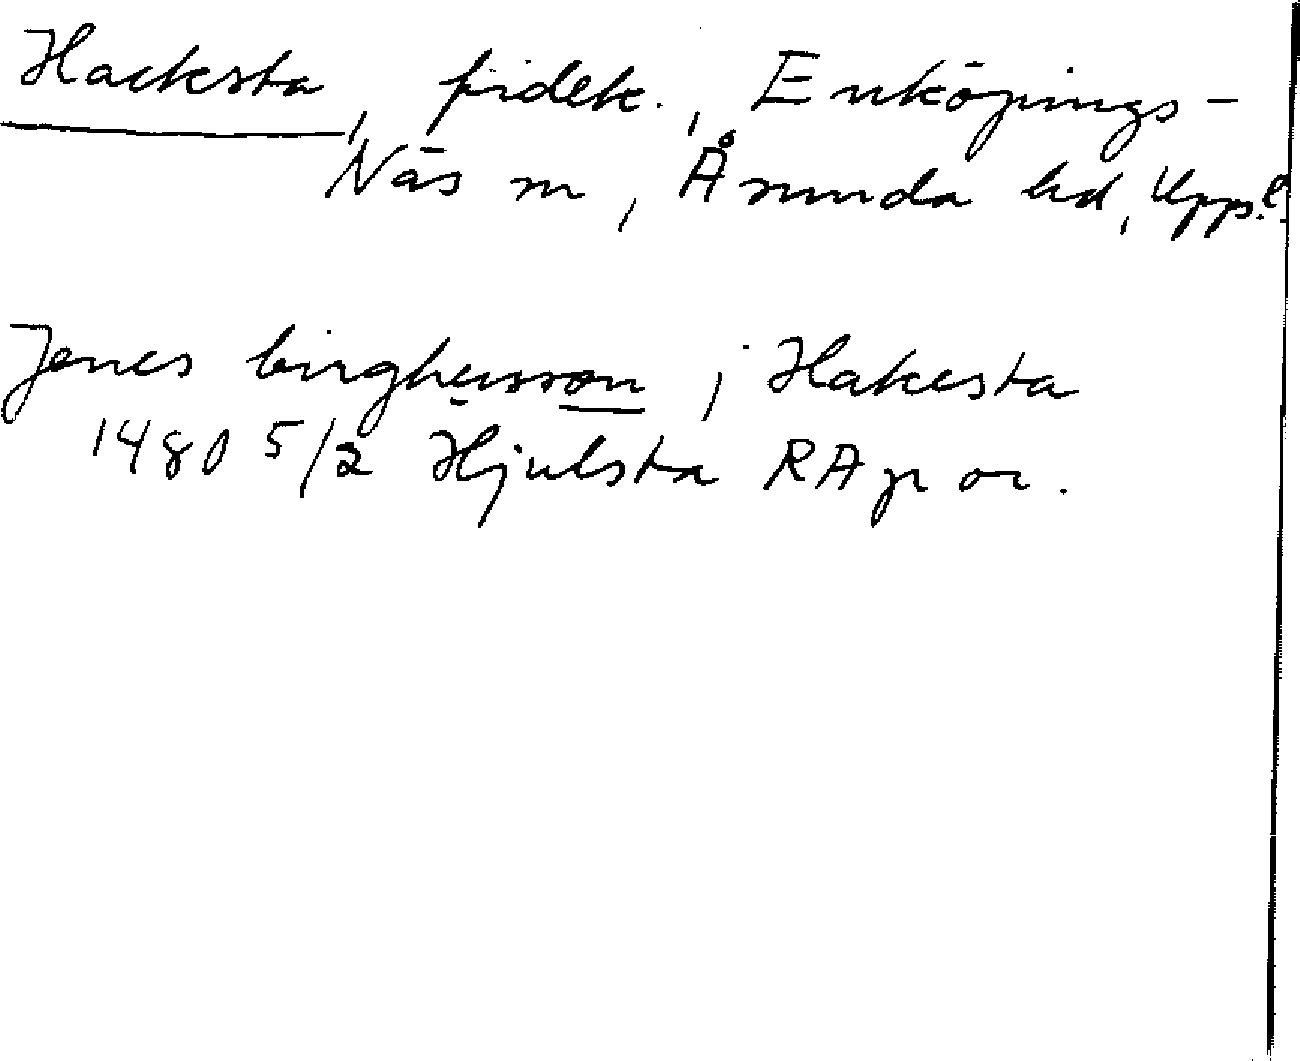 Hacksta, fidek., Enköpings-
Näs sn, Åsunda hd, Uppl.
Jenes birghersson i Hakesta
1480 5/2 Hjulsta RAp or.